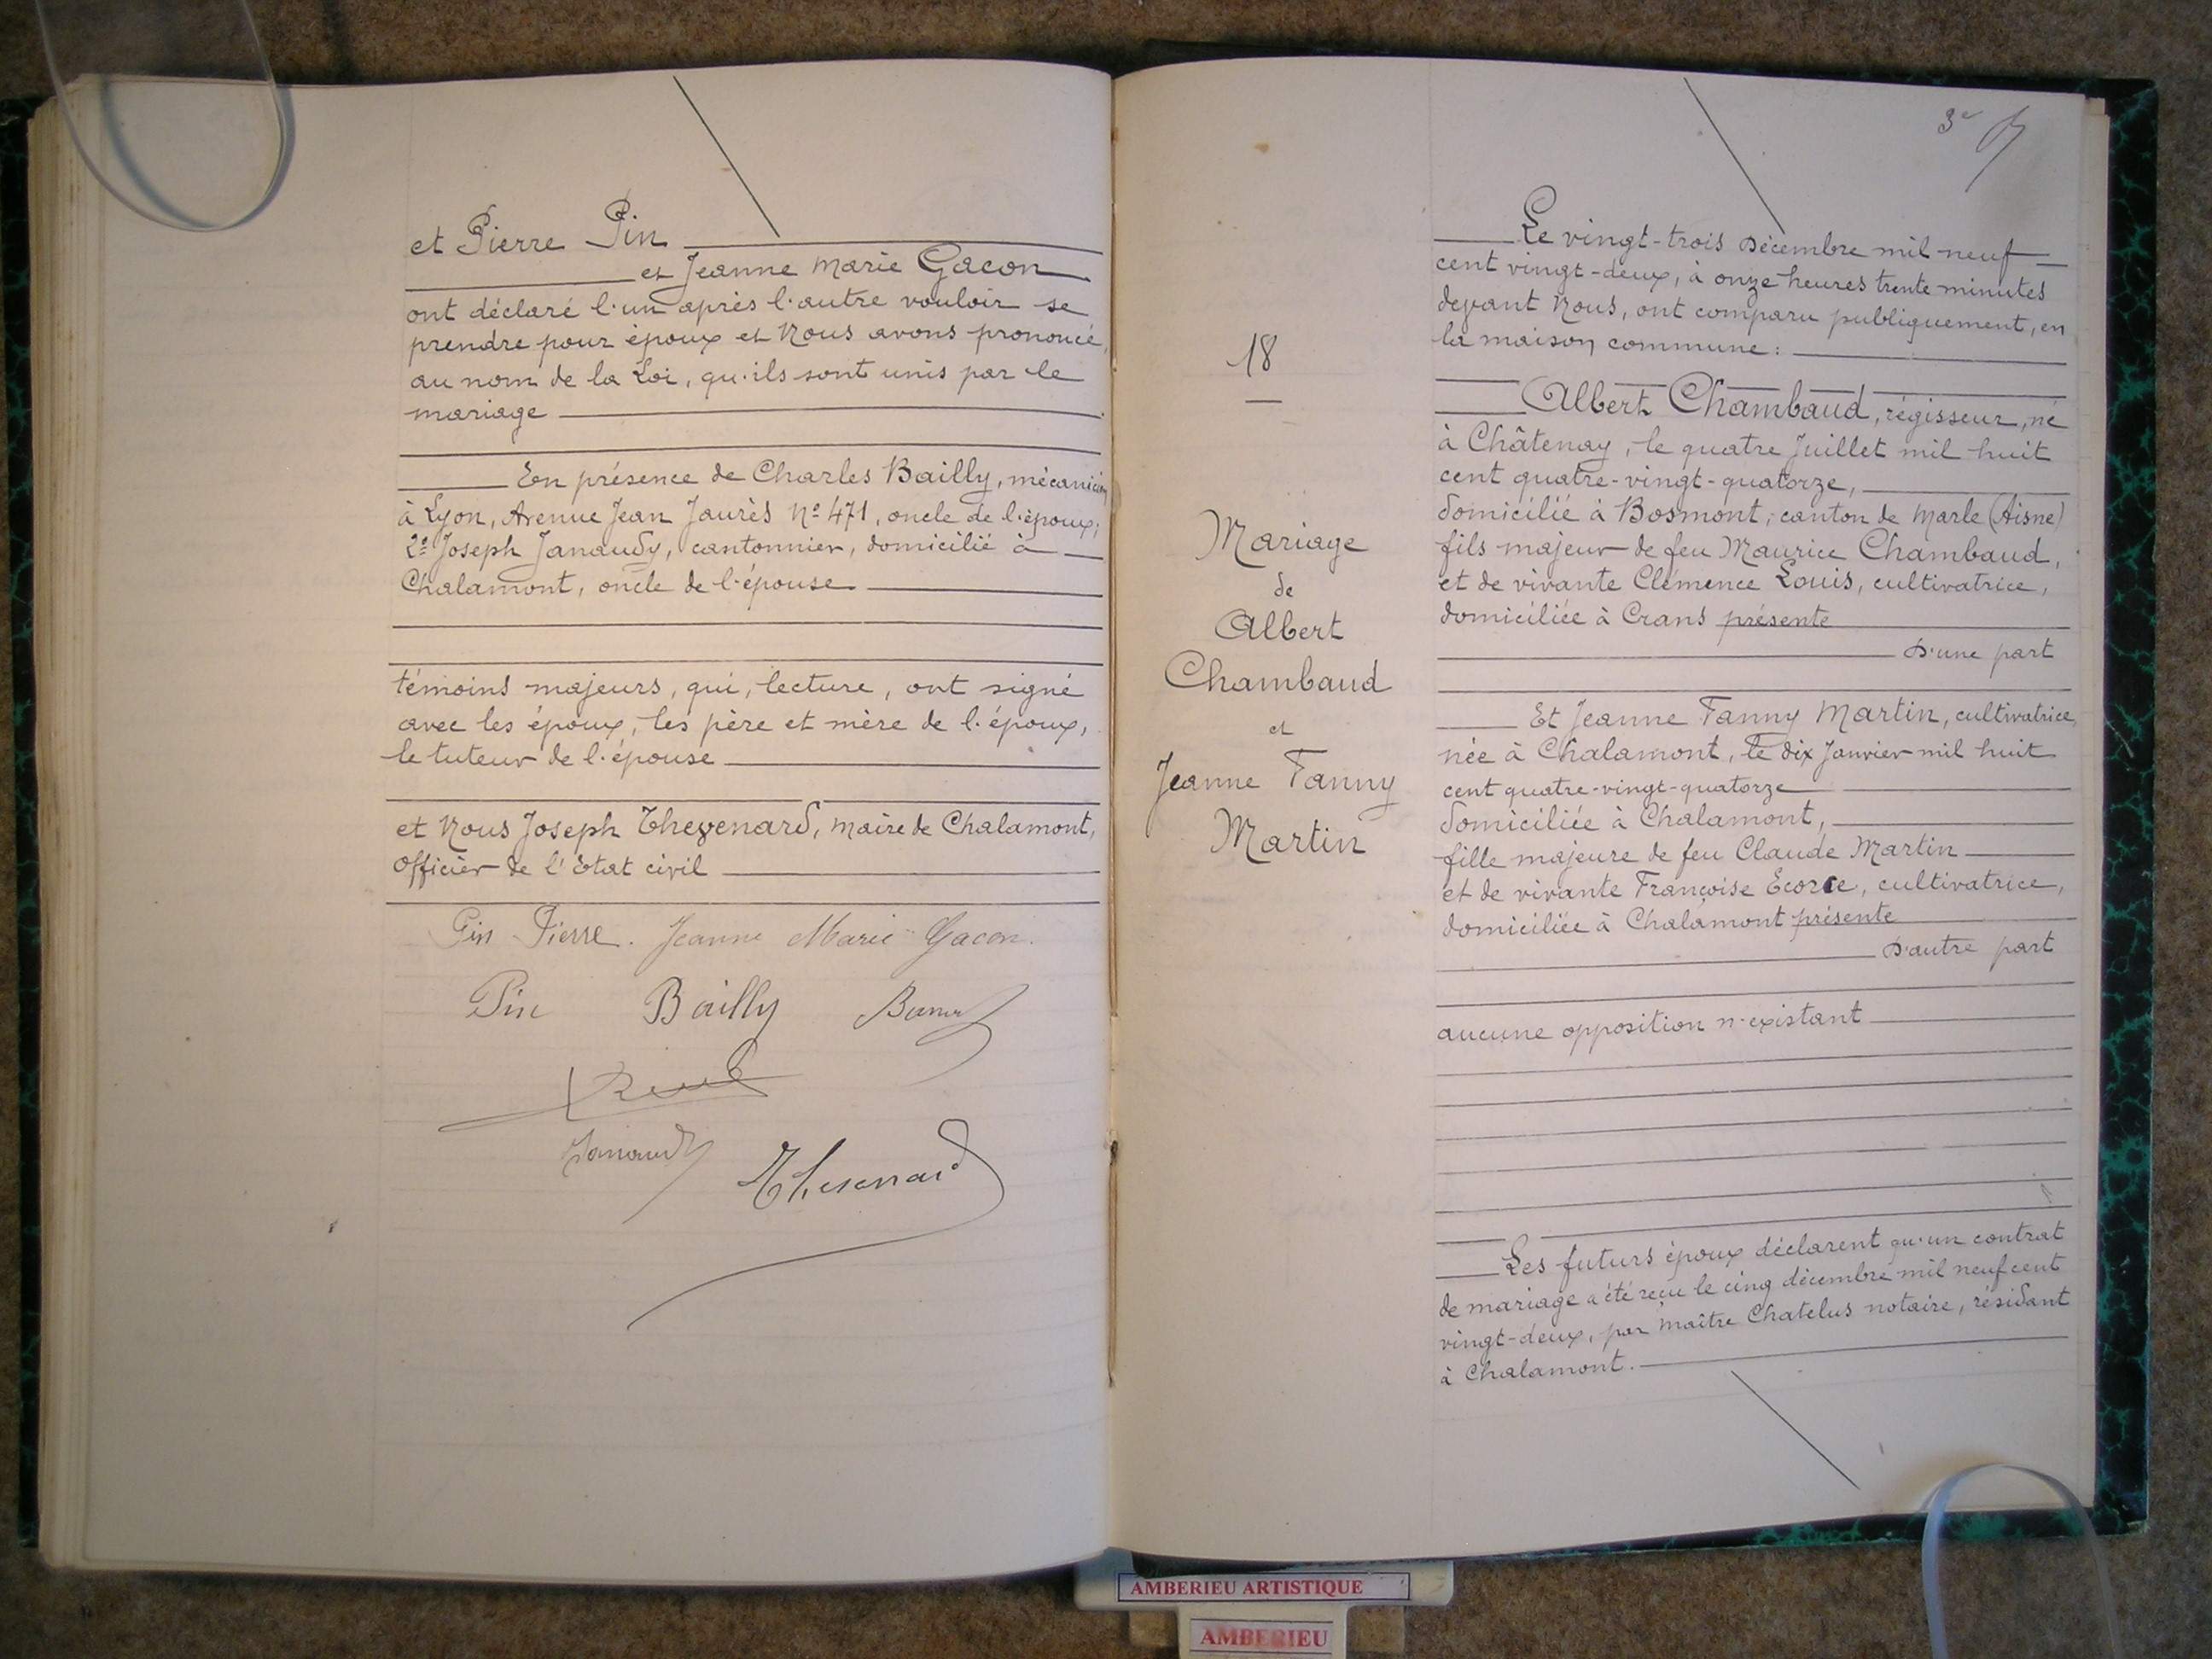 et Pierre Pin
et Jeanne Marie Gacon
ont déclaré l'un après l'autre vouloir se
prendre pour époux et Nous avons prononcé,
au nom de la Loi, qu'ils sont unis par le
mariage
En présence de Charles Bailly, mécanicien
à Lyon, Avenue Jean Jaurès No 471, oncle de l'époux;
2o Joseph Janaudy, cantonnier, domicilié à
Chalamont, oncle de l'épouse
témoins majeurs, qui, lecture, ont signé
avec les époux, les père et mère de l'époux,
le tuteur de l'épouse
et Nous Joseph Thevenard, Maire de Chalamont,
Officier de l'Etat civil
Pin Pierre. Jeanne Marie Gacon.
Pin Bailly
Janaudy Thevenard
18
Mariage
de
Albert
Chambaud
et
Jeanne Fanny
Martin
Le vingt-trois Décembre mil neuf
cent vingt-deux, à onze heures trente minutes
devant Nous, ont comparu publiquement, en
la maison commune :
Albert Chambaud, régisseur, né
à Châtenay, le quatre Juillet mil huit
cent quatre-vingt-quatorze,
domicilié à Bosmont, canton de Marle (Aisne)
fils majeur de feu Maurice Chambaud,
et de vivante Clémence Louis, cultivatrice,
domiciliée à Crans présente
D'une part
Et Jeanne Fanny Martin, cultivatrice,
née à Chalamont, le dix Janvier mil huit
cent quatre-vingt-quatorze
domiciliée à Chalamont,
fille majeure de feu Claude Martin
et de vivante Françoise Ecorce, cultivatrice,
domiciliée à Chalamont présente
D'autre part
aucune opposition n'existant
Les futurs époux déclarent qu'un contrat
de mariage a été reçu le cinq décembre mil neuf cent
vingt-deux, par Maître Chatelus notaire, résidant
à Chalamont.
AMBERIEU ARTISTIQUE
AMBERIEU